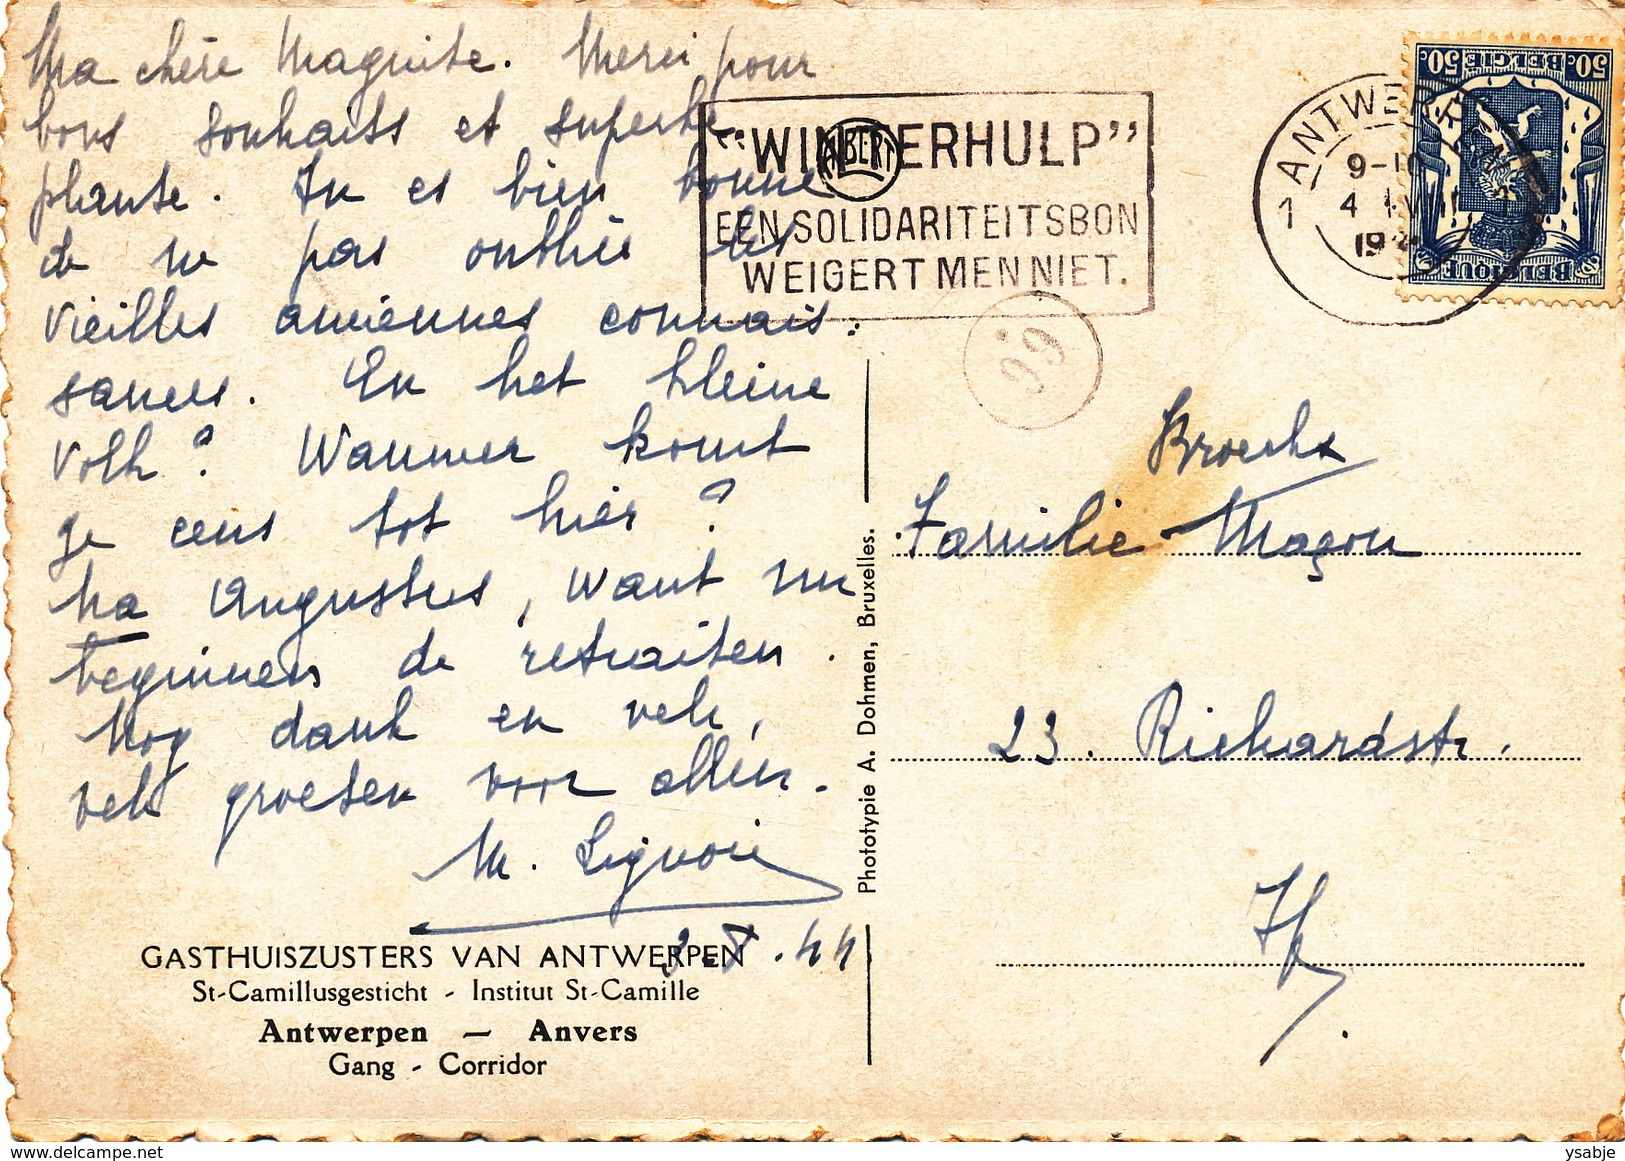 Ma chère Maguite. Merci pour
bons souhaits et superbe
plante. Tu es bien bonne
de ne pas oublier les
vieilles anciennes connais-
sances. En het kleine
volk? Wanneer komt
je eens tot hier?
na Augustus, want nu
beginnen de retraiten.
Nog dank en vele,
vele groeten voor allen.
M.
44
GASTHUISZUSTERS VAN ANTWERPEN
St-Camillusgesticht - Institut St-Camille
Antwerpen — Anvers
Gang - Corridor
Phototypie A. Dohmen, Bruxelles.
"WINTERHULP"
EEN SOLIDARITEITSBON
WEIGERT MEN NIET.
1 ANTWERPEN
9-10
4
19
50c BELGIE 50c
BELGIQUE
Familie Maçon
23. Richardstr.
www.delcampe.net
ysabje